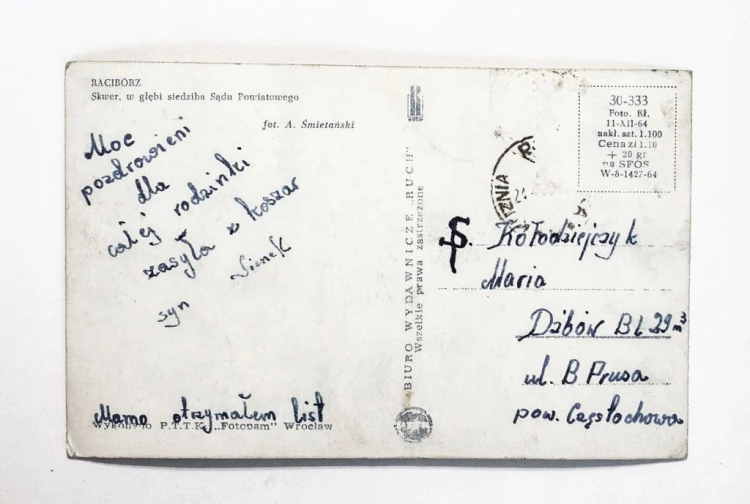 RACIBÓRZ
Skwer, w głębi siedziba Sądu Powiatowego
fot. A. Śmietański
Moc
pozdrowieni
dla
całej rodzinki
zasyła z koszar
syn Sienek
Mamo otrzymałem list
Wykonano P.T.T.K. „Fotopam” Wrocław
BIURO WYDAWNICZE „RUCH”
Wszelkie prawa zastrzeżone
30-333
Foto. Kl.
11-XII-64
nakł. szt. 1.100
Cena zł 1.10
+ 20 gr
na SFOS
W-8-1427-64
Kołodziejczyk
Maria
Dźbów Bl 29
ul. B Prusa
pow. Częstochowa